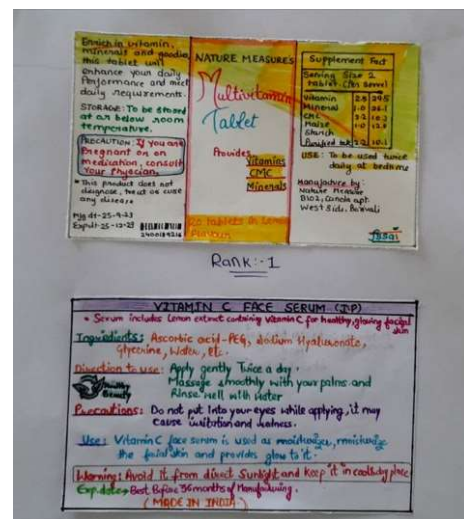 Enrich in vitamin,
minerals and goodies
this tablet will
enhance your daily
Performance and meet
daily requirements.
STORAGE: To be stored
at or below room
temperature.
PRECAUTION: If you are
Pregnant or on
medication, consult
Your Physcian.
* This product does not
diagnose, treat or cure
any disease
Mfg dt-25-9-23
Exp dt-25-12-23
NATURE MEASURES
Multivitamin
Tablet
Provides
Vitamins
CMC
Minerals
20 tablets in Lemon
flavour
Supplement Fact
Serving Size 2
tablet (Per serve)
Vitamin 2.5
Mineral 1.0
CMC 2.2
Maize 1.0
Starch
USE: To be used twice
daily at bedtime
Manufacture by:
Nature Measure
B102, apt.
West Side, Borivali
Rank:-1
VITAMIN C FACE SERUM (IP)
* Serum includes Lemon extract containing Vitamin C for healthy, glowing facial
skin
Ingredients: Ascorbic acid-PEG, Sodium Hyaluronate,
Glycerine, Water, Etc.
Direction to use: Apply gently Twice a day.
Massage smoothly with your palms and
Rinse well with water
Healthy
Beauty
Precautions: Do not put into your eyes while applying, it may
cause irritation and
Use: Vitamin C face serum is used as moisturize, moisturize
the facial skin and provides glow to it.
Warning: Avoid it from direct Sunlight and keep it in cool & dry place
Exp.date→ Best Before 36 months of Manufacturing.
(MADE IN INDIA)